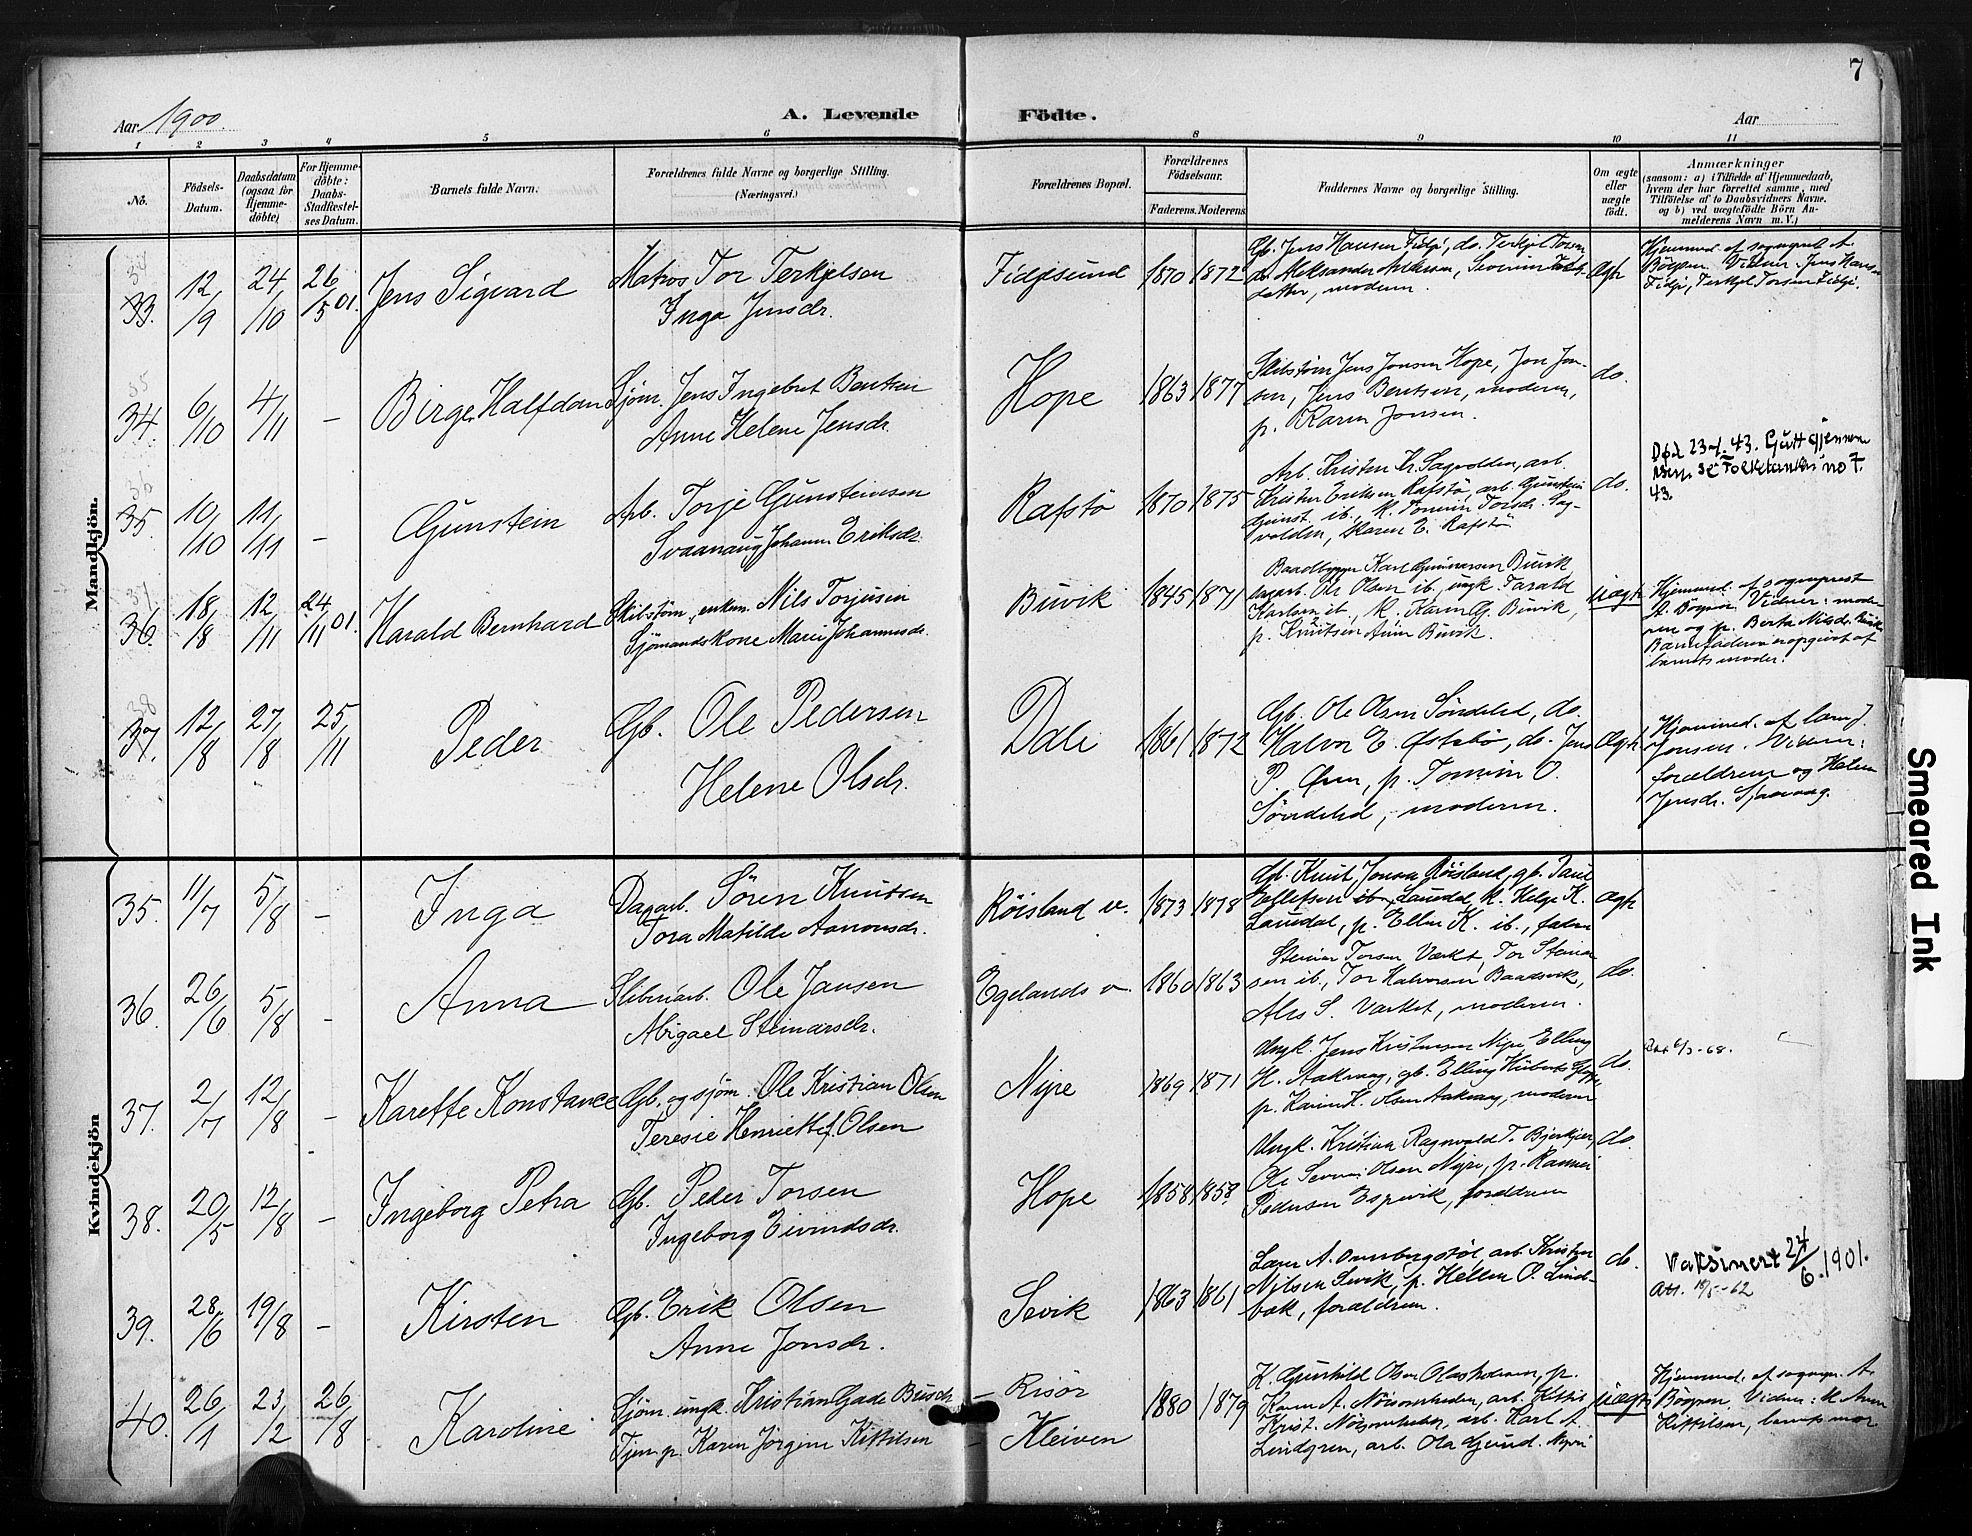 7
Aar 1900.
A. Levende Födte.
Aar
1 2 3 4 5 6 8 9 10 11
No.
Födsels-Datum.
Daabsdatum (ogsaa for Hjemme-döbte)
For Hjemme-döbte: Daabs-Stadfæstel-ses Datum.
Barnets fulde Navn.
Forældrenes fulde Navne og borgerlige Stilling.
(Næringsvei.)
Forældrenes Bopæl.
Forældrenes Födselsaar.
Faderens. Moderens
Faddernes Navne og borgerlige Stilling.
Om ægte eller uægte födt.
Anmærkninger
(saasom: a) i Tilfælde af Hjemmedaab,
hvem der har forrettet samme, med
Tilföielse af to Daabsvidners Navne.
og b) ved uægtefödte Börn An-
melderens Navn m. V.)
Mandkjön.
34
33. 12/9 24/10 26/5 01. Jens Sigvard
Matros Tor Terkjelsen
Inga Jensdr.
Fidjesund 1870 1872
Gb. Jens Hansen Fidje, do. Terkjel Torsen
do. Aleksander Andersen, Severine
datter, moderen.
ægte
Hjemmed. af sognepr. A.
Bögren. Vidner: Jens Hansen
Fidje, Terkjel Torsen Fidje.
35
34. 6/10 4/11 – Birger Halfdan
Sjøm. Jens Ingebret Bentsen
Anne Helene Jensdr.
Hope 1863 1877
Skibstøm. Jens Jonsen Hope, Jon Jon-
sen, Jens Bentsen, moderen,
p. Karen Jonsen.
do.
36
35. 10/10 11/11 – Gunstein
Arb. Torje Gunsteinsen
Svaanaug Johanne Eriksdr.
Rafstø 1870 1875
Arb. Kristen Kr. Sagvolden, arb.
Krister Eriksen Rafstø, arb. Gunstein
Gunst. ib., K. Tomine Torsdr. Sag-
volden, Karen E. Rafstø
do.
Død 23 43.
no 7.
43.
37
36. 18/8 12/11 24/11 01. Harald Bernhard
Skibstøm., enkem. Nils Torjusen
Sjømandskone Marie Johannesdr.
Buvik 1845 1871
Baadbygger Karl Gunnarsen Buvik
dagarb. Ole Olsen ib., ungk. Tarald
Karlsen ib., K. Karen G. Buvik,
p. Knutsine Buvik.
uægte
Hjemmed. af sogneprest
A. Bögren. Vidner: mode-
ren og p. Berte Nilsdr. Buvik
Barnefaderen opgivet af
barnets moder.
38
37. 12/8 27/8 25/11 Peder
Gb. Ole Pedersen
Helene Olsdr.
Dale 1861 1872
Gb. Ole Olsen Søndeled, do.
Halvor E. Østebø, do. Jens
P. Øren, p. Tomine O.
Søndeled, moderen.
Ægte.
Hjemmed. af lærer J.
Jensen. Vidner:
forældrene og Helene
Jensdr. Sjaavaag.
Kvindekjön
35. 11/7 5/8 – Inga
Dagarb. Søren Knutsen
Tora Matilde Aanonsdr.
Røisland v. 1873 1878
Gb. Knut Jonsen Røisland, gb. Taral
Ellefsen ib., Lauvdal, K. Helge K.
Lauvdal, p. Ellen K. ib., faderen
ægte
36. 26/6 5/8 – Anna
Sliberiarb. Ole Jansen
Abigael Steinarsdr.
Egelands v. 1860 1863
Steinar Torsen Værket, Tor Steinar-
sen ib., Tor Halvorsen Baadsvik,
Alis S. Værket, moderen.
do.
37. 2/7 12/8 – Karette Konstance
Gb. og sjøm. Ole Kristian Olsen
Teresie Henriette f. Olsen
Nipe 1869 1871
Ungk. Jens Kristensen Nipe, Elling
H. Aakvaag, gb. Elling Hope,
p. Karen K. Olsen Aakvaag, moderen
do.
6/3-68.
38. 20/5 12/8 – Ingeborg Petra
Gb. Peder Torsen
Ingeborg Eivindsdr.
Hope 1858 1858
Ungk. Kristian Ragnvald T. Bjerkjær,
Ole Severin Olsen Nipe, p. Rannei
Pedersen Espevik, forældrene
do.
39. 28/6 19/8 – Kirsten
Gb. Erik Olsen
Anne Jonsdr.
Sevik 1863 1861
Lærer A. Omnbergstøl, arb. Kristen
Nilsen Sevik, p. Hellene O. Lind-
bæk, forældrene.
do.
Vaksinert 24/6.1901.
Att. 18/5-62
40. 26/1 23/2 26/8 Karoline
Sjøm. ungk. Kristian Gade Buschr
Tjen. p. Karen Jørgine Kittilsen
– Risør
– Kleiven
1880 1879
K. Gunhild Olsen Olasholmen, p.
Karen A. Nørsomheden, arb. Kittil
Krist. Nørsomheden, arb. Karl A.
Lindgren, arb. Ola Gjund.
uægte
Hjemmed. af sognepr. A.
Bögren. Vidner: M. Anne
Kittilsen, barnets mor
Smeared Ink